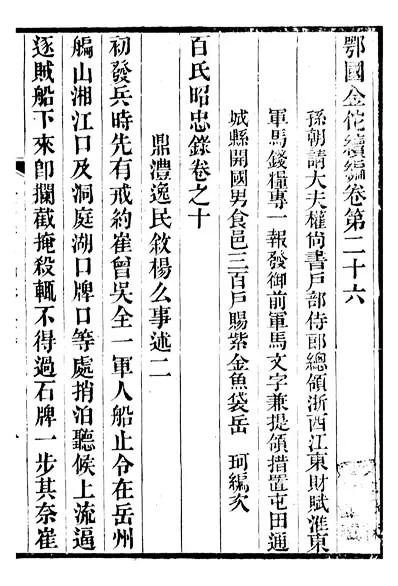 鄂國金佗續編卷第二十六
孫朝請大夫權尚書戶部侍郎總領浙西江東財賦淮東
軍馬錢糧專一報發御前軍馬文字兼提領措置屯田通
城縣開國男食邑三百戶賜紫金魚袋岳　珂編次
百氏昭忠錄卷之十
鼎澧逸民敘楊么事述二
初發兵時先有戒約崔曾吳全一軍人船止令在岳州
艑山湘江口及洞庭湖口牌口等處捎泊聽候上流逼
逐賊船下來卽攔截掩殺輒不得過石牌一步其奈崔